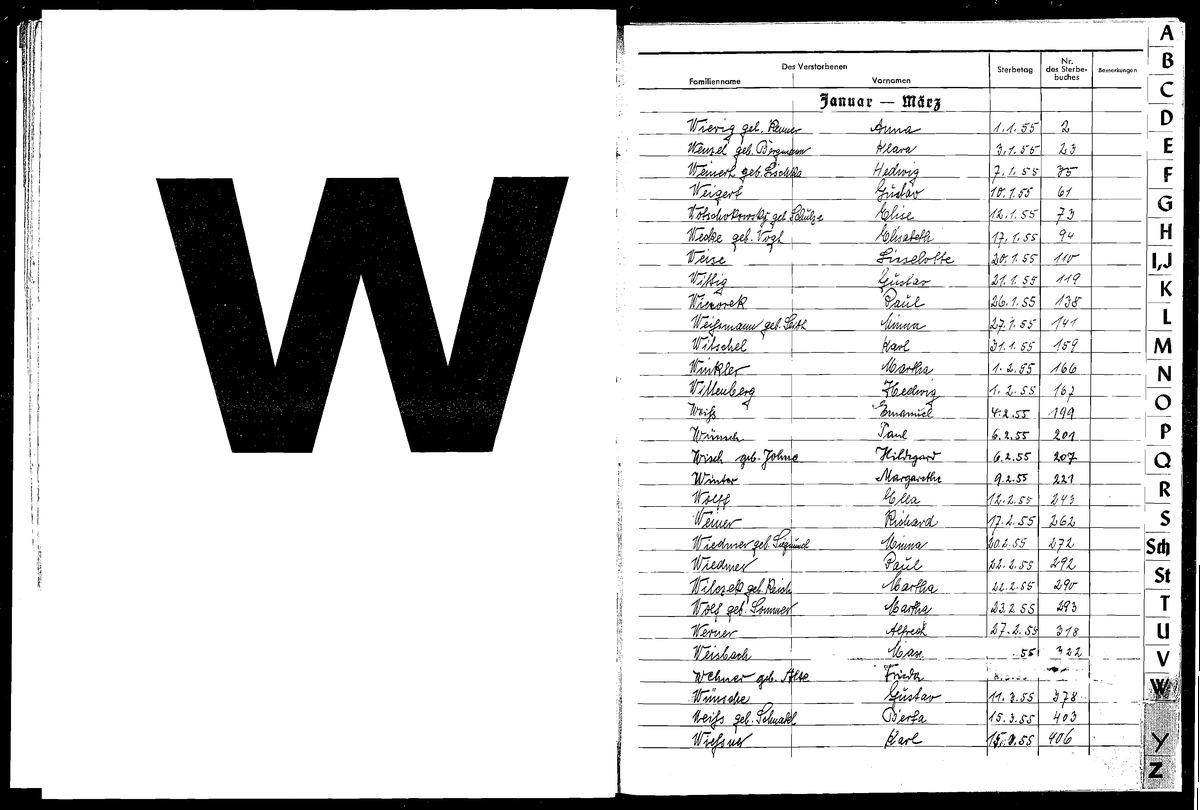 W
Des Verstorbenen
Familienname Vornamen Sterbetag Nr. des Sterbe-buches Bemerkungen
Januar — März
Wierig geb. Renner Anna 1.1.55 2
Wenzel geb. Bergmann Klara 3.1.55 23
Weinert geb. Lischka Hedwig 7.1.55 35
Weigert Gustav 10.1.55 61
geb. Schulze Elise 12.1.55 73
Wecke geb. Vogt Elisabeth 17.1.55 94
Weise Lieselotte 20.1.55 110
Wittig Gustav 21.1.55 119
Wiezorek Paul 26.1.55 138
Weißmann geb. Minna 27.1.55 141
Witschel Karl 31.1.55 159
Winkler Martha 1.2.55 166
Wittenberg Hedwig 1.2.55 167
Weiß Emanuel 4.2.55 199
Wünsch Paul 6.2.55 201
Wisch geb. Johne Hildegard 6.2.55 207
Winter Margarethe 9.2.55 221
Wolff Ella 12.2.55 243
Weiner Richard 17.2.55 262
Wiedmer geb. Siegmund Minna 20.2.55 272
Wiedmer Paul 22.2.55 292
Wilczek geb. Reich Martha 22.2.55 290
Wolf geb. Sommer Martha 23.2.55 293
Werner Alfred 27.2.55 318
Weisbach Max 55 322
Wehner geb. Alte Frieda
Wünsche Gustav 11.3.55 378
Weiß geb. Schnabel Berta 15.3.55 403
Wießner Karl 15.3.55 406
A
B
C
D
E
F
G
H
I,J
K
L
M
N
O
P
Q
R
S
Sch
St
T
U
V
W
Y
Z